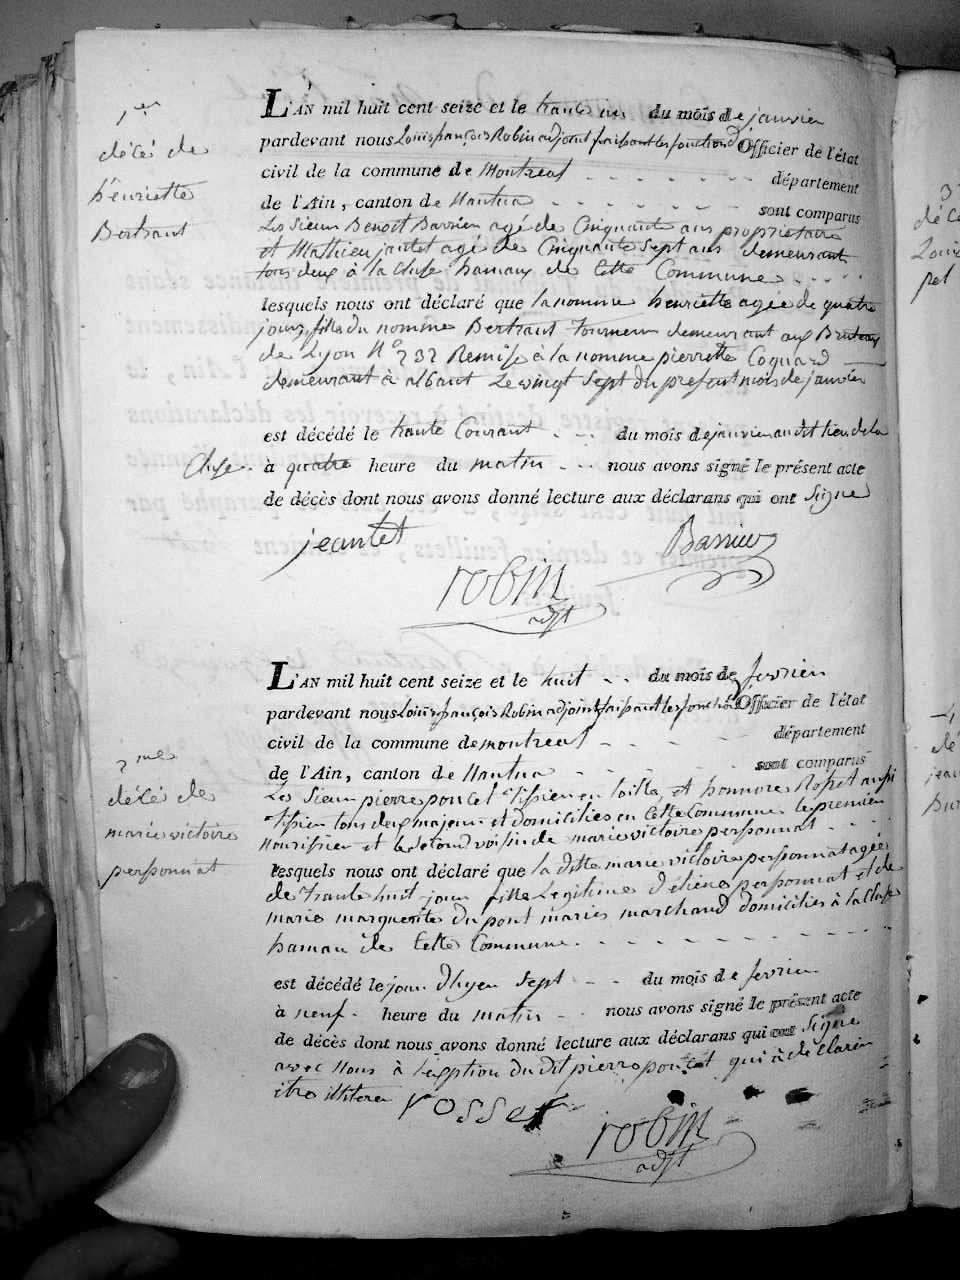 1er
décé de
henriette
Bertraut
L'AN mil huit cent seize et le trante un du mois de janvier
pardevant nous Louis françois Robin adjoint faisant les fonctions d'Officier de l'état
civil de la commune de Montreal département
de l'Ain, canton de Nantua sont comparus
Les Sieurs Benoit Barrier agé de Cinquante ans propriétaire
et Mathieu jantet agé de Cinquante Sept ans demeurant
tous deux à la Cluse hamaux de Cette Commune
lesquels nous ont déclaré que la nomme henriette agée de quatre
jours fille du nomme Bertraut tourneur demeurant aux
de Lyon N° 232 Remise à la nomme pierrette Coquard
demeurant à albant Le vingt Sept du present mois de janvier
est décédé le trante Courant du mois de janvier au dit lieu de la
Cluse. à quatre heure du matin nous avons signé le présent acte
de décès dont nous avons donné lecture aux déclarans qui ont Signe
jeantet Barrier
robin
adjt
2me
décé de
marie victoire
personnat
L'AN mil huit cent seize et le huit du mois de fevrier
pardevant nous Louis françois Robin adjoint faisant les fonctions d'Officier de l'état
civil de la commune de montreal département
de l'Ain, canton de Nantua sont comparus
Les Sieur pierre poncet tissier en toille et honnore Rosset aussi
tissier tous deux majeur et domiciliés en Cette Commune le premier
nourissier et le second voisin de marie victoire personnat
lesquels nous ont déclaré que la ditte marie victoire personnat agée
de trante huit jour fille Legitime d'etiene personnat et de
marie marguerite du pont mariés marchand domiciliés à la Cluse
hamau de Cette Commune.
est décédé le jour d'hyer Sept du mois de fevrier
à neuf heure du matin nous avons signé le présent acte
de décès dont nous avons donné lecture aux déclarans qui ont Signe
avec Nous à l'éxeption du dit pierre poncet qui à déclarer
être illiterer rosset
robin
adjt
3
déc
Loui
pel
dé
jean